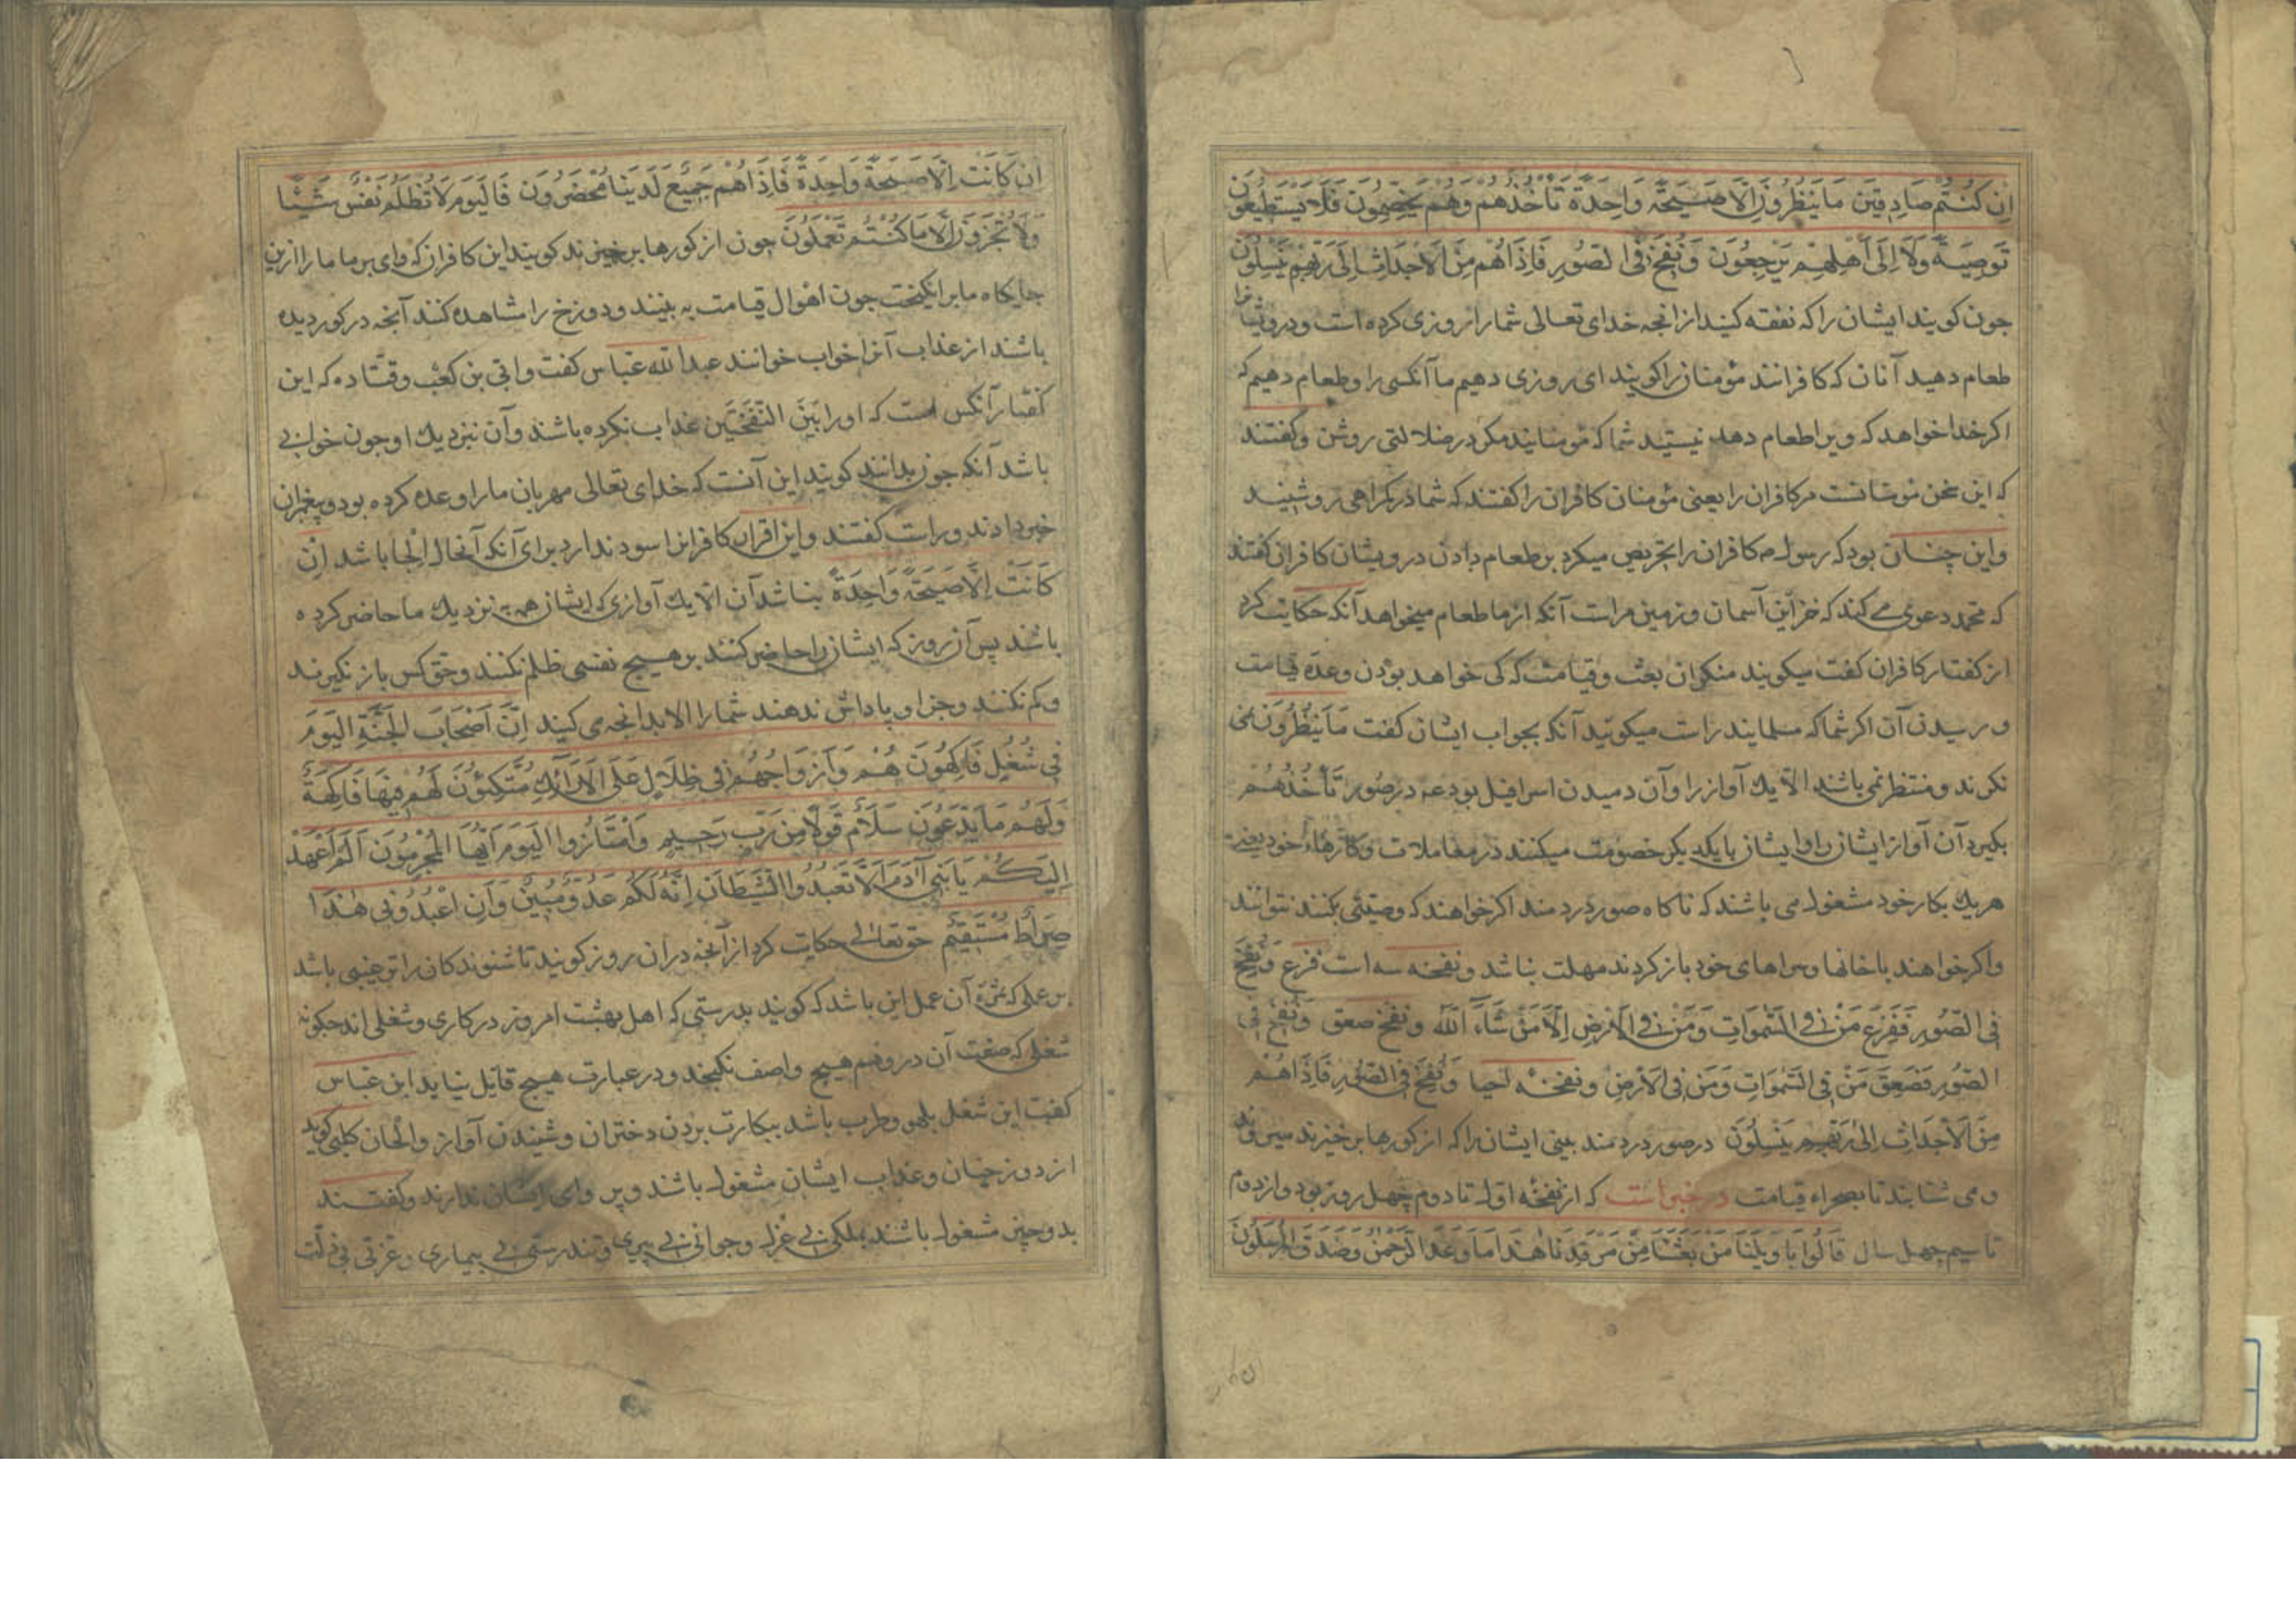 اِن كُنتُم صَادِقِينَ مَا يَنظُرُونَ اِلَّا صَيحَةً وَاحِدَةً تَأخُذُهُم وَهُم يَخِصِّمُونَ فَلَا يَستَطِيعُونَ
تَوصِيَةً وَلَا اِلَى اَهلِهِم يَرجِعُونَ وَنُفِخَ فِى الصُّورِ فَاِذَا هُم مِنَ الاَجدَاثِ اِلَى رَبِّهِم يَنسِلُونَ
جون كويند ايشان را كه نفقه كنيد از انجه خداى تعالى شما را روزى كرده است و درويشانرا
طعام دهيد آنان كه كافرانند مؤمنان را كويند اى روزى دهيم ما آنكسى را و طعام دهيم كه
اكر خدا خواهد كه ويرا طعام دهد نيستيد شما كه مؤمنانيد مكر در ضلالتى روشن و كفتند
كه اين سخن مؤمنانست مر كافران را يعنى مؤمنان كافران را كفتند كه شما در كمراهى روشنيد
و اين چنان بود كه رسول م كافران را تحريص ميكرد بر طعام دادن درويشان كافران كفتند
كه محمد دعوى مے كند كه خزاين آسمان و زمين مراست آنكه از ما طعام ميخواهد آنكه حكايت كرد
از كفتار كافران كفت ميكويند منكران بعث و قيامت كه كى خواهد بودن وعدهٔ قيامت
و رسيدن آن اكر شما كه مسلمانيد راست ميكوئيد آنكه بجواب ايشان كفت مَا يَنظُرُونَ نمى
نكرند و منتظر نمى باشند الّا يك آواز را و آن دميدن اسرافيل بود عه در صور تَأخُذُهُم
بكيرد آن آواز ايشان را و ايشان با يكديكر خصومت ميكنند در معاملات و كارهاء خود يعنى
هر يك بكار خود مشغول مى باشند كه ناكاه صور دردمند اكر خواهند كه وصيّتى بكنند نتوانند
و اكر خواهند با خانها و سراهاى خود باز كردند مهلت نباشد و نفخه سه است فزع وَنُفِخَ
فِى الصُّورِ فَفَزِعَ مَن فِى السَّمٰوَاتِ وَمَن فِى الاَرضِ اِلَّا مَن شَاءَ اللّٰه و نفخ صعق وَنُفِخَ فِى
الصُّورِ فَصَعِقَ مَن فِى السَّمٰوَاتِ وَمَن فِى الاَرضِ و نفخهٔ احيا وَنُفِخَ فِى الصُّورِ فَاِذَا هُم
مِنَ الاَجدَاثِ اِلٰى رَبِّهِم يَنسِلُونَ در صور دردمند بينى ايشان را كه از كورها بر خيزند ميروند
و مى شتابند تا بصحراء قيامت در خبر است كه از نفخهٔ اول تا دوم چهل روز بود و از دوم
تا سيم چهل سال قَالُوا يَا وَيلَنَا مَن بَعَثَنَا مِن مَرقَدِنَا هٰذَا مَا وَعَدَ الرَّحمٰنُ وَصَدَقَ المُرسَلُونَ
اِن كَانَت اِلَّا صَيحَةً وَاحِدَةً فَاِذَا هُم جَمِيعٌ لَدَينَا مُحضَرُونَ فَاليَومَ لَا تُظلَمُ نَفسٌ شَيئًا
وَلَا تُجزَونَ اِلَّا مَا كُنتُم تَعمَلُونَ جون از كورها بر خيزند كويند اين كافران كه واى بر ما ما را ازين
جايكاه ما بر انكيخت جون اهوال قيامت به بينند و دوزخ را مشاهده كنند آنجه در كور ديده
باشند از عذاب آنرا خواب خوانند عبد الله عباس كفت و ابى بن كعب و قتاده كه اين
كفتار آنكس است كه او را بَينَ النَّفخَتَين عذاب نكرده باشند و آن بنزديك او جون خوابى
باشد آنكه جون بدانند كويند اين آنست كه خداى تعالى مهربان ما را وعده كرده بود و پيغمبران
خبر دادند و راست كفتند و اين اقرار كافرانرا سود ندارد براى آنكه آنحال الجا باشد اِن
كَانَت اِلَّا صَيحَةً وَاحِدَةً نباشد آن الا يك آوازى كه ايشان همه بنزديك ما حاضر كرده
باشند پس آن روز كه ايشان را حاضر كنند بر هيچ نفسى ظلم نكنند و حق كس باز نكيرند
و كم نكنند و جزا و پاداش ندهند شما را الا بدانجه مى كنيد اِنَّ اَصحَابَ الجَنَّةِ اليَومَ
فِى شُغُلٍ فَاكِهُونَ هُم وَاَزوَاجُهُم فِى ظِلَالٍ عَلَى الاَرَائِكِ مُتَّكِئُونَ لَهُم فِيهَا فَاكِهَةٌ
وَلَهُم مَا يَدَّعُونَ سَلَامٌ قَولًا مِن رَبٍّ رَحِيمٍ وَامتَازُوا اليَومَ اَيُّهَا المُجرِمُونَ اَلَم اَعهَد
اِلَيكُم يَا بَنِى آدَمَ اَلَّا تَعبُدُوا الشَّيطَانَ اِنَّهُ لَكُم عَدُوٌّ مُبِينٌ وَاَنِ اعبُدُونِى هٰذَا
صِرَاطٌ مُستَقِيمٌ حق تعالى حكايت كرد از آنجه در ان روز كويند تا شنوندكان را ترغيبى باشد
بر عملى كه ثمرهٔ آن عمل اين باشد كه كويند بدرستى كه اهل بهشت امروز در كارى و شغلى اند جكونه
شغلى كه صفت آن در وهم هيچ واصف نكنجد و در عبارت هيچ قايل نيايد ابن عباس
كفت اين شغل بلهو و طرب باشد ببكارت بردن دختران و شنيدن آواز و الحان كلبى كويد
از دوزخيان و عذاب ايشان مشغول باشند و پرواى ايشان ندارند و كفتند
بدو چيز مشغول باشند بملكى بے عزل و جوانى بے پيرى و تندرستى بے بيمارى و عزتى بى ذلّت